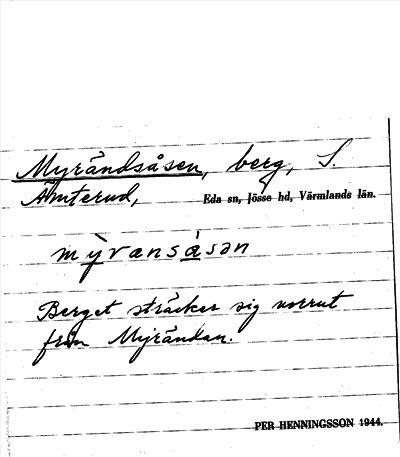 Myrändsåsen, berg, S.
Åmterud, Eda sn, Jösse hd, Värmlands län.
mỳvansásən
Berget sträcker sig norrut
från Myrändan.
PER HENNINGSSON 1944.